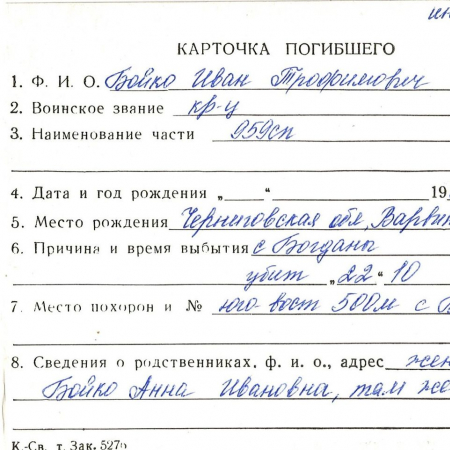 КАРТОЧКА ПОГИБШЕГО
1. Ф. И. О. Бойко Иван Трофимович
2. Воинское звание кр-ц
3. Наименование части 959сп
4. Дата и год рождения „ “ 19
5. Место рождения Черниговская обл, Варвин
6. Причина и время выбытия с Богданы
убит „22“ 10
7. Место похорон и № юго-вост 500м с Б
8. Сведения о родственниках, ф. и. о., адрес жен
Бойко Анна Ивановна, там же
К.-Св. т. Зак. 527б